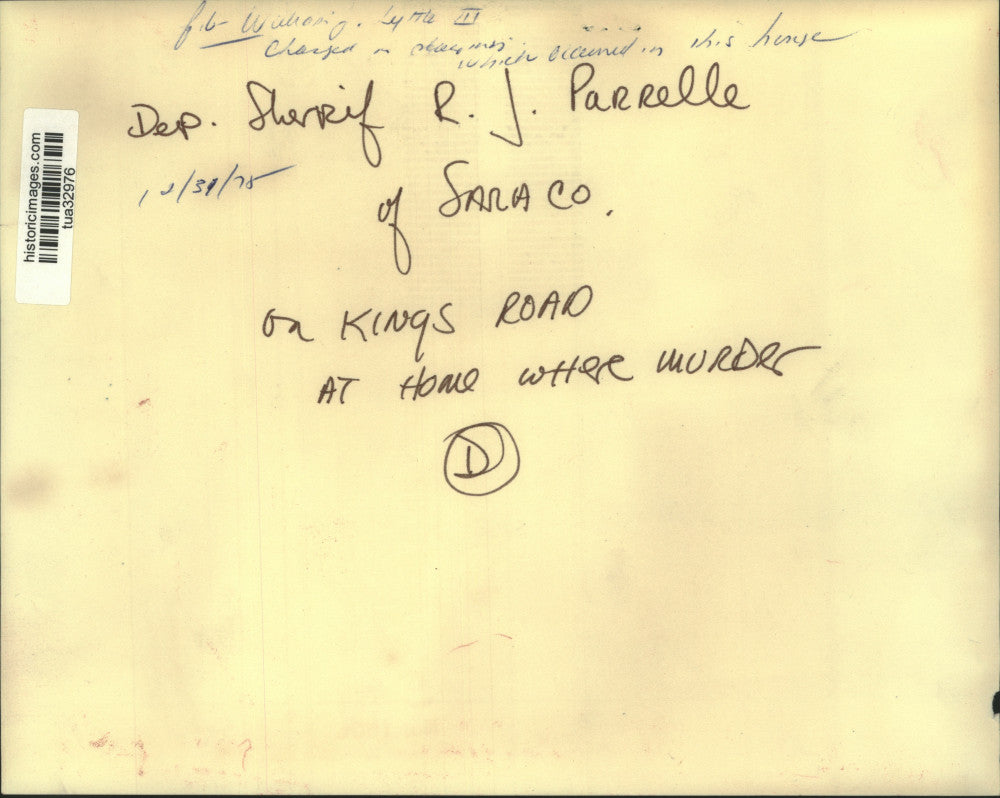 file William J. Lyttle III
Charged in slayings
which occurred in this house
Dep. Sherrif R. J. Parrelle
12/31/75
of SARA CO.
on KINGS ROAD
AT HOME WHERE MURDER
D
historicimages.com
tua32976